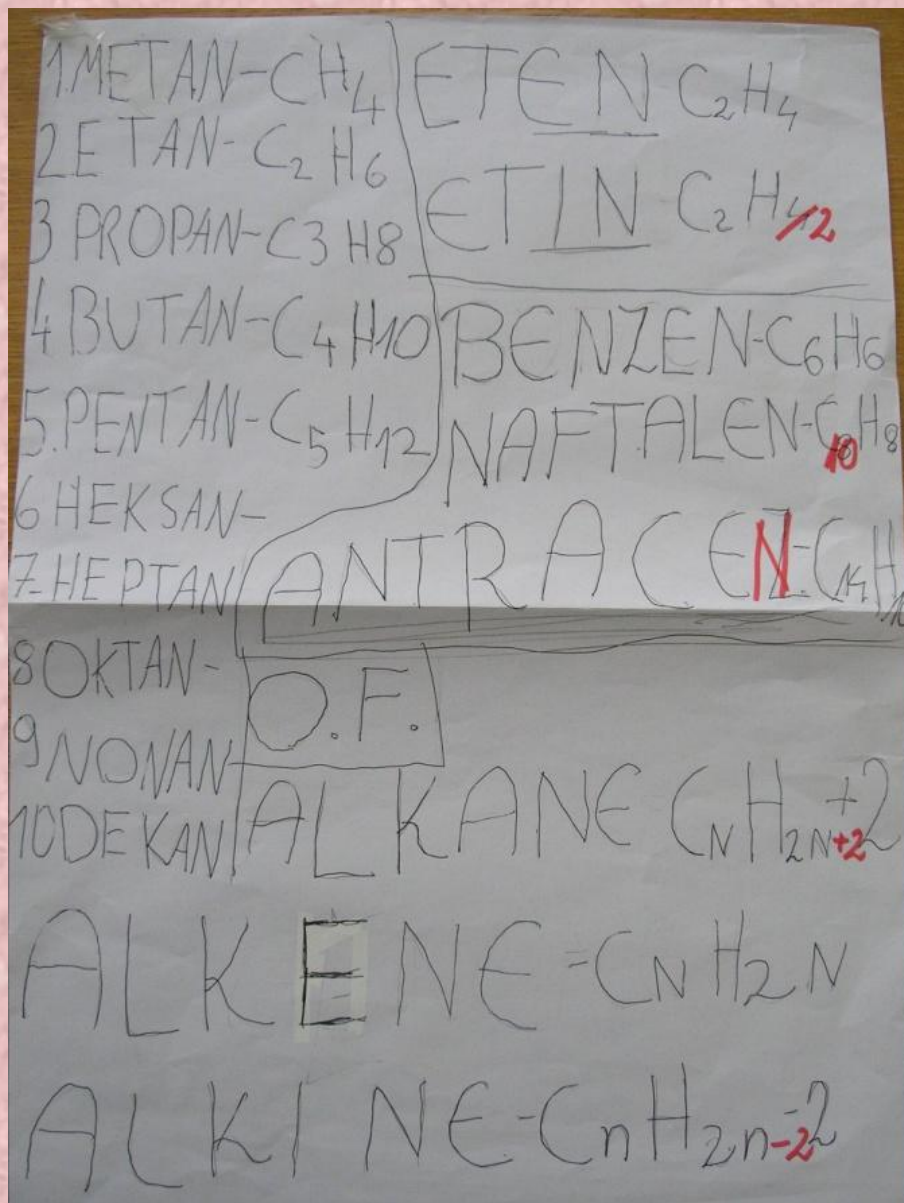 1.METAN-CH4
2ETAN-C2H6
3 PROPAN-C3H8
4 BUTAN-C4H10
5.PENTAN-C5H12
6 HEKSAN-
7-HEPTAN
8 OKTAN-
9 NONAN
10 DEKAN
ETEN C2H4
ETIN C2H2
BENZEN-C6H6
NAFTALEN-C10H8
ANTRACEN-C14H
O.F.
ALKANE CNH2N+2 +2
ALKENE=CNH2N
ALKINE-CnH2n-2 -2